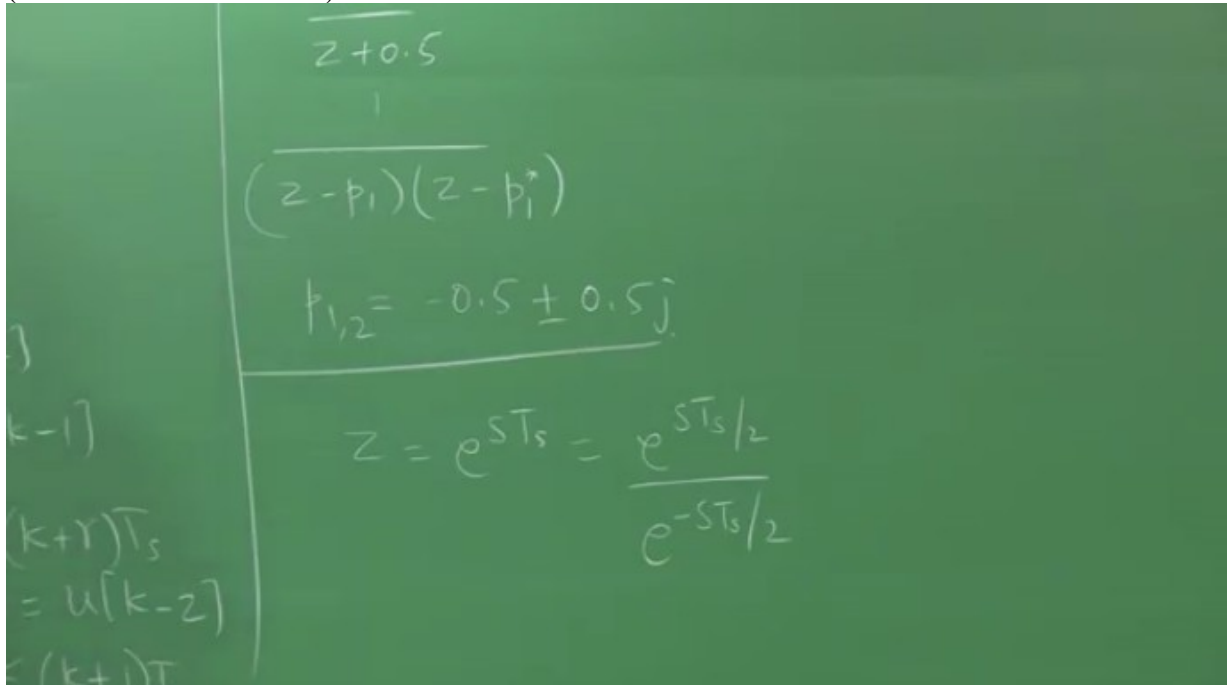 z+0.5
1
(z-p₁)(z-p₁*)
p₁,₂ = -0.5 ± 0.5j
]
k-1]
z = e^{sTₛ} = e^{sTₛ/2} / e^{-sTₛ/2}
(k+γ)Tₛ
= u[k-2]
(k+1)T